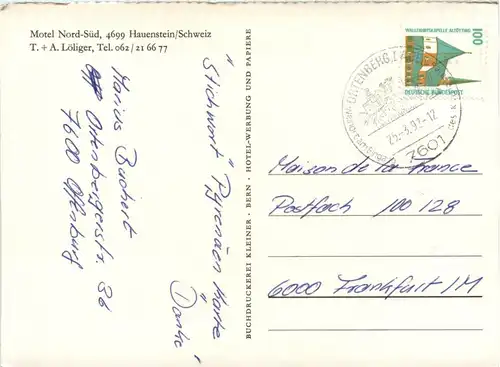 Motel Nord-Süd, 4699 Hauenstein/Schweiz
T. + A. Löliger, Tel. 062/21 66 77
"Stichwort" Pyrenäen Karte
Danke
Marius Bachert
Ortenbergerstr. 36
7600 Offenburg
BUCHDRUCKEREI KLEINER - BERN - HOTEL-WERBUNG UND PAPIERE
WALLFAHRTSKAPELLE ALTÖTTING
100
DEUTSCHE BUNDESPOST
ORTENBERG,
25.-3.92-12
7601
des
Maison de la France
Postfach 100 128
6000 Frankfurt/M